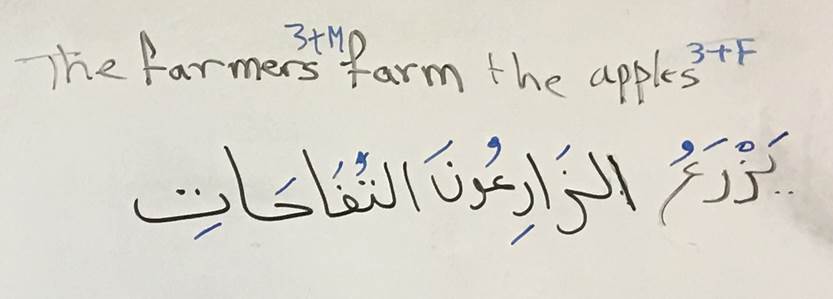 The farmers 3+M farm the apples 3+F
يَزْرَعُ الزَارِعُونَ التُفَاحَاتِ